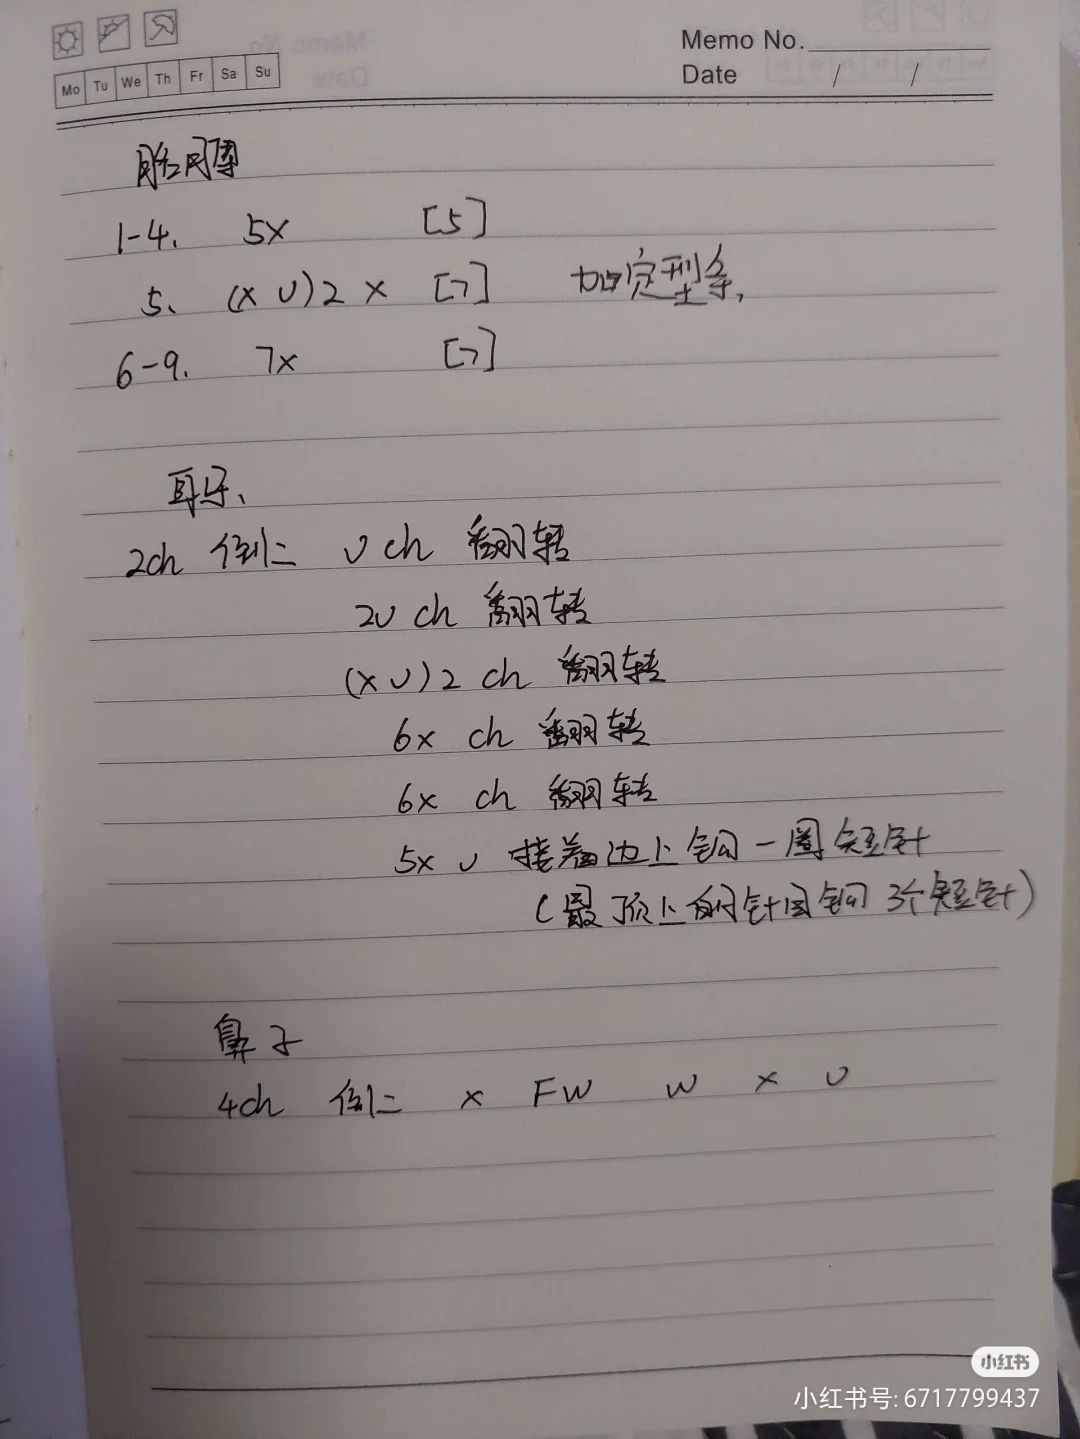 Memo No.
Mo Tu We Th Fr Sa Su
Date / /
胳膊
1-4. 5X [5]
5、 (X U)2 X [7] 加定型条,
6-9. 7X [7]
耳朵、
2ch 倒二 U ch 翻转
2U ch 翻转
(X U)2 ch 翻转
6X ch 翻转
6X ch 翻转
5X U 接着边上钩一圈短针
(最顶上的针目钩3个短针)
鼻子
4ch 倒二 X FW W X U
小红书
小红书号: 6717799437